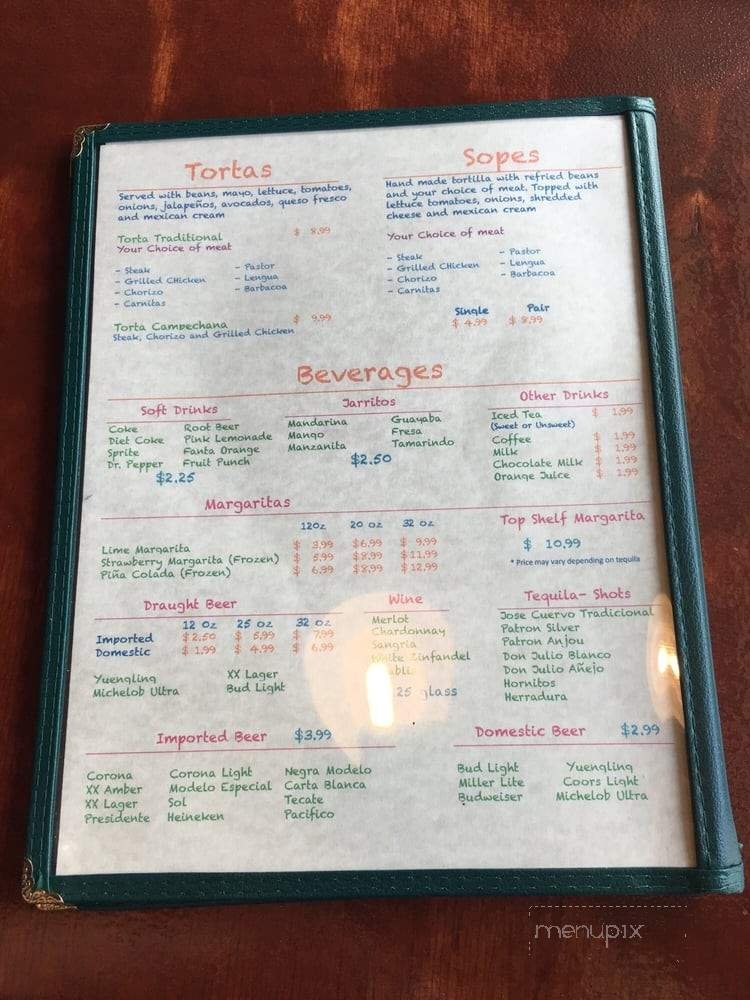 Tortas
Served with beans, mayo, lettuce, tomatoes,
onions, jalapeños, avocados, queso fresco
and mexican cream
Torta Traditional $ 8.99
Your Choice of meat
- Steak - Pastor
- Grilled CHicken - Lengua
- Chorizo - Barbacoa
- Carnitas
Torta Campechana $ 9.99
Steak, Chorizo and Grilled Chicken
Sopes
Hand made tortilla with refried beans
and your choice of meat. Topped with
lettuce tomatoes, onions, shredded
cheese and mexican cream
Your Choice of meat
- Steak - Pastor
- Grilled CHicken - Lengua
- Chorizo - Barbacoa
- Carnitas
Single Pair
$ 4.99 $ 8.99
Beverages
Soft Drinks
Coke Root Beer
Diet Coke Pink Lemonade
Sprite Fanta Orange
Dr. Pepper Fruit Punch
$2.25
Jarritos
Mandarina Guayaba
Mango Fresa
Manzanita Tamarindo
$2.50
Other Drinks
Iced Tea $ 1.99
(Sweet or Unsweet)
Coffee $ 1.99
Milk $ 1.99
Chocolate Milk $ 1.99
Orange Juice $ 1.99
Margaritas
12oz 20 oz 32 oz
Lime Margarita $ 3.99 $6.99 $ 9.99
Strawberry Margarita (Frozen) $ 5.99 $8.99 $11.99
Piña Colada (Frozen) $ 6.99 $8.99 $ 12.99
Top Shelf Margarita
$ 10.99
* Price may vary depending on tequila
Draught Beer
12 oz 25 oz 32 oz
Imported $2.50 $ 5.99 $ 7.99
Domestic $ 1.99 $ 4.99 $ 6.99
Yuengling XX Lager
Michelob Ultra Bud Light
Wine
Merlot
Chardonnay
Sangria
White Zinfandel
25 glass
Tequila- Shots
Jose Cuervo Tradicional
Patron Silver
Patron Anjou
Don Julio Blanco
Don Julio Añejo
Hornitos
Herradura
Imported Beer $3.99
Corona Corona Light Negra Modelo
XX Amber Modelo Especial Carta Blanca
XX Lager Sol Tecate
Presidente Heineken Pacifico
Domestic Beer $2.99
Bud Light Yuengling
Miller Lite Coors Light
Budweiser Michelob Ultra
menupix